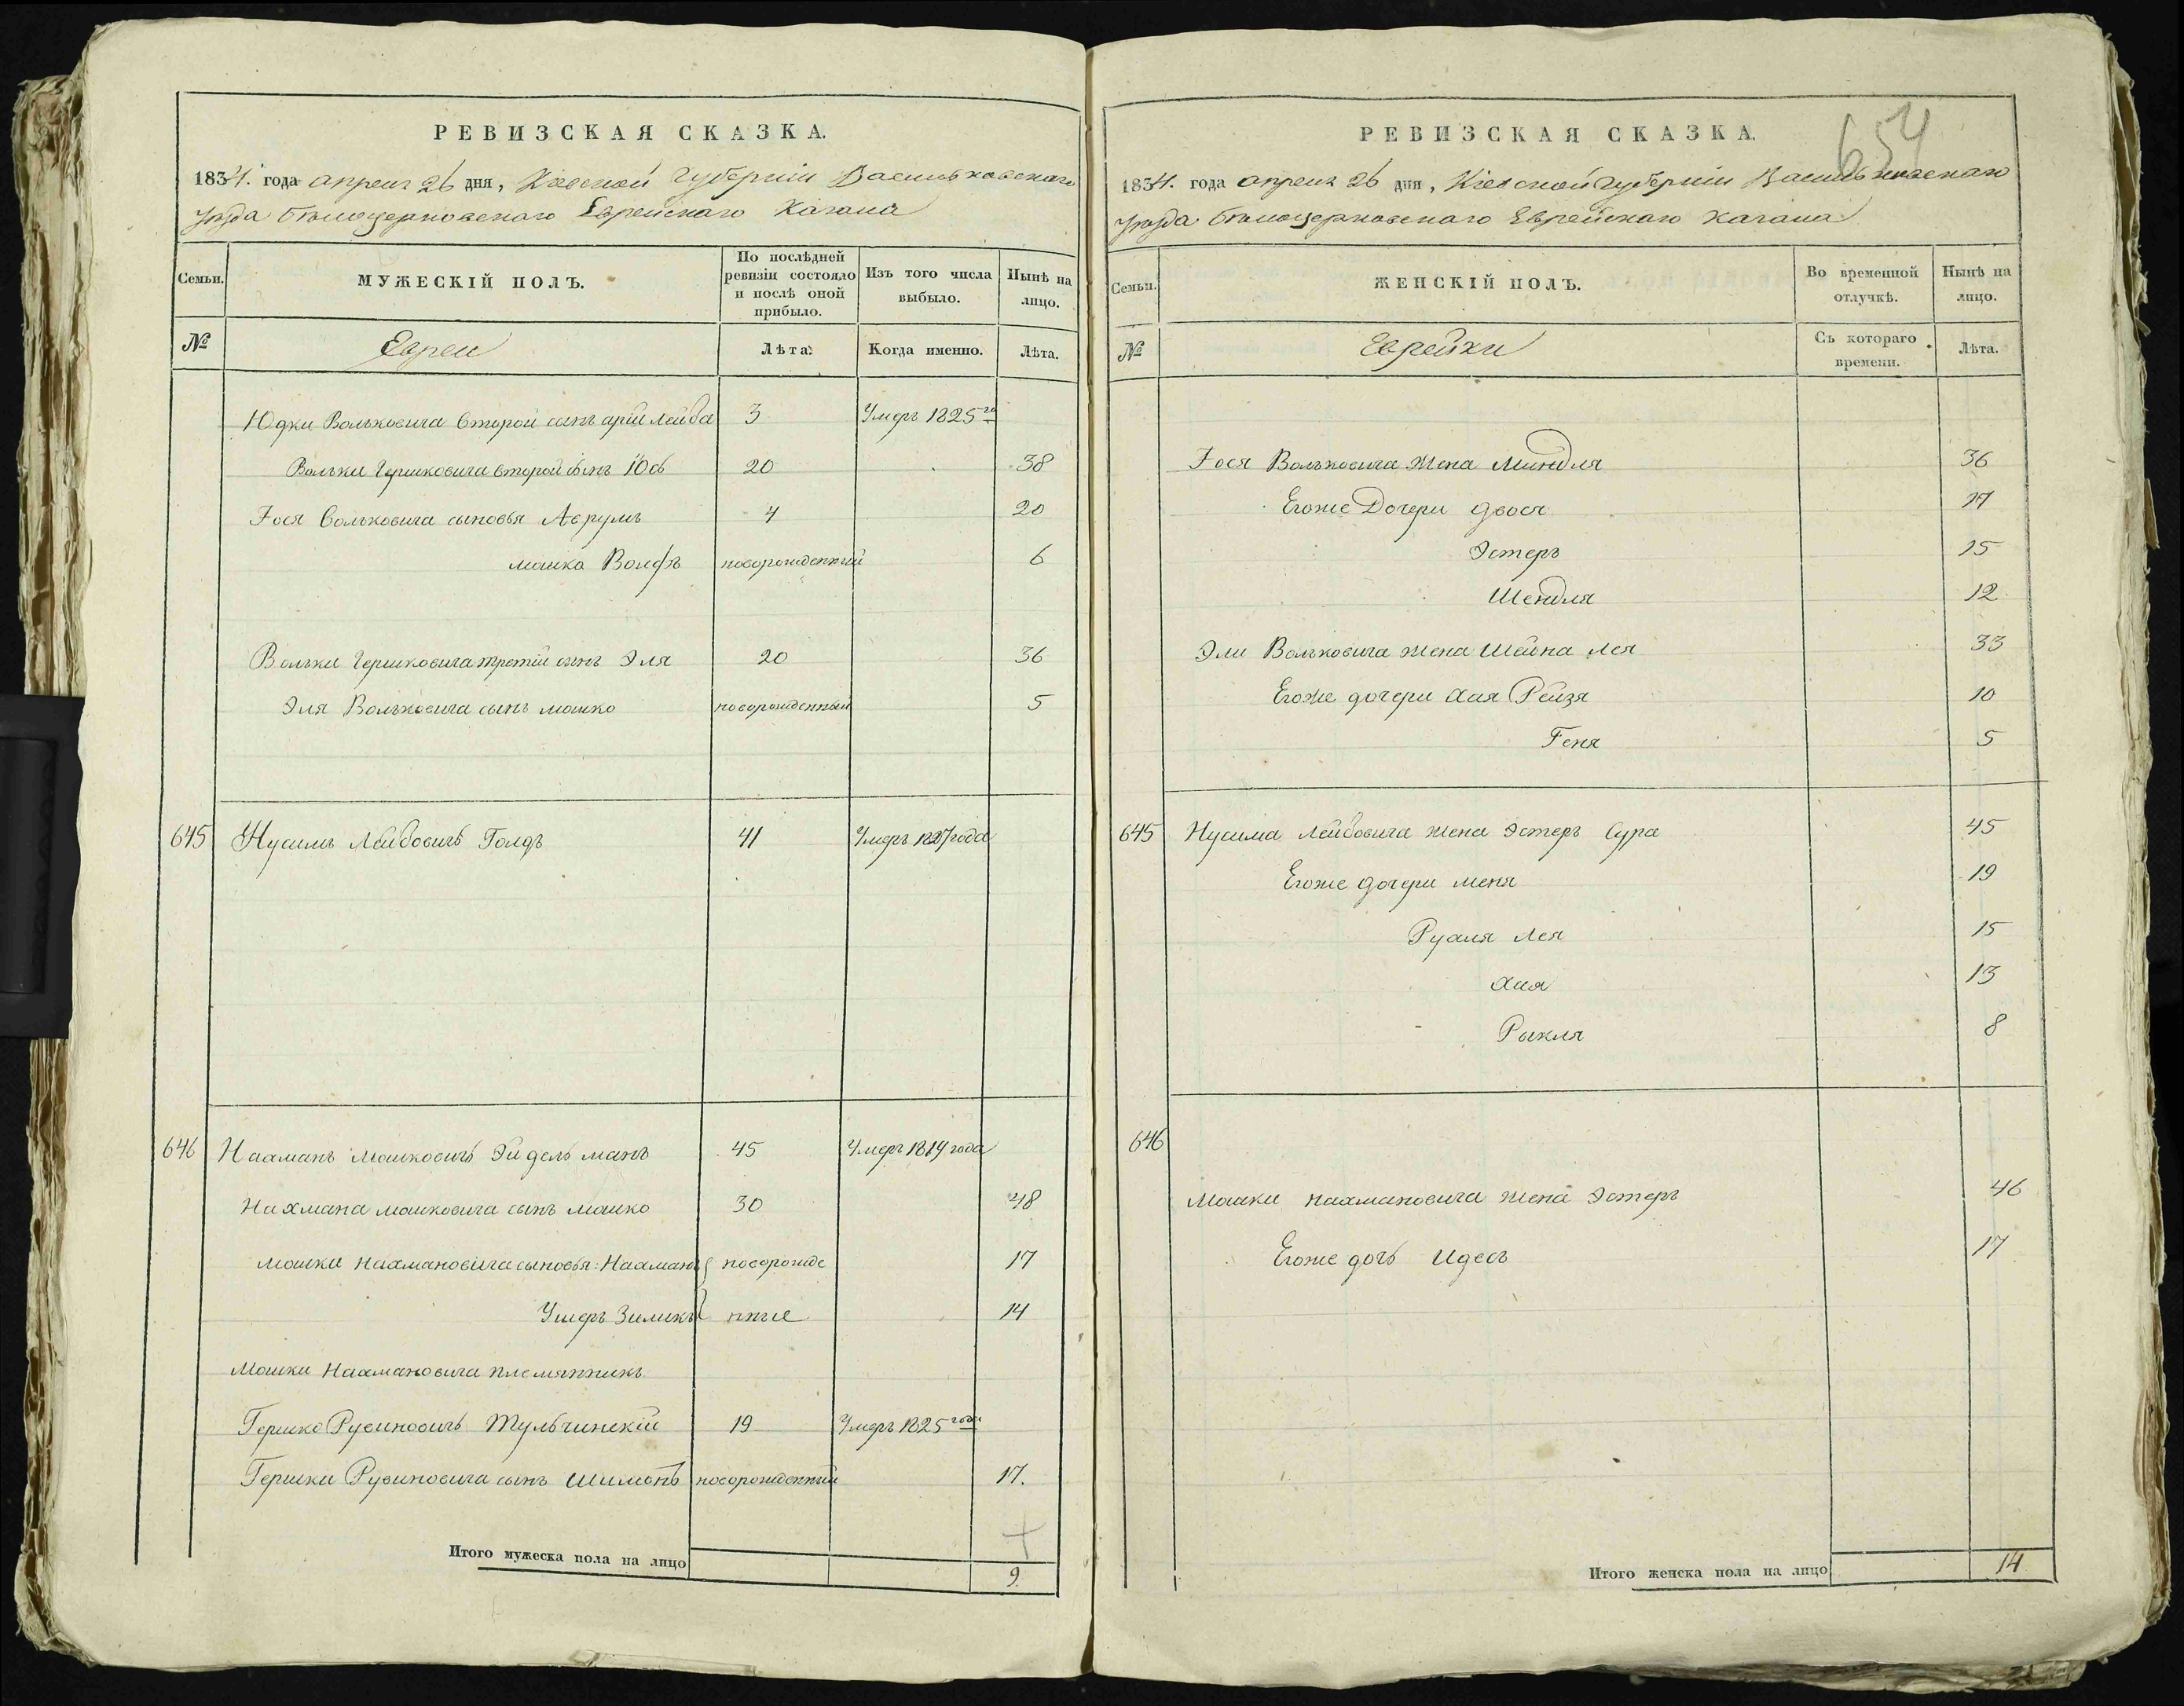 РЕВИЗСКАЯ СКАЗКА.
1834. года апреля 26 дня, Кіевской Губерніи Васильковскаго
уѣзда бѣлоцерковскаго Еврейскаго Кагала
Семьи.
МУЖЕСКІЙ ПОЛЪ.
По послѣдней ревизіи состояло и послѣ оной прибыло.
Изъ того числа выбыло.
Нынѣ на лицо.
№
Евреи
Лѣта.
Когда именно.
Лѣта.
Юдки Вольковича второй сынъ арій лейба 3 Умеръ 1825го
Вольки Гершковича второй сынъ Іось 20 38
Іося Вольковича сыновья Аврумъ 4 20
мошко Волфъ новорожденный 6
Вольки Гершковича третій сынъ Эля 20 36
Эля Вольковича сынъ мошко новорожденный 5
645 Нусимъ Лейбовичъ Голдъ 41 Умеръ 1827 года
646 Нахманъ мошковичъ Эйдельманъ 45 Умеръ 1819 года
Нахмана мошковича сынъ мошко 30 48
мошки нахмановича сыновья: Нахманъ новорожде 17
Умеръ Зиликъ нные 14
мошки Нахмановича племянникъ
Гершко Рувиновичъ Тульчинскій 19 Умеръ 1825 года
Гершки Рувиновича сынъ Шимонъ новорожденный 17.
Итого мужеска пола на лицо 9
654
РЕВИЗСКАЯ СКАЗКА.
1834. года апреля 26 дня, Кіевской Губерніи Васильковскаго
уѣзда бѣлоцерковскаго Еврейскаго кагала
Семьи.
ЖЕНСКІЙ ПОЛЪ.
Во временной отлучкѣ.
Нынѣ на лицо.
№
Еврейки
Съ котораго времени.
Лѣта.
Іося Вольковича жена Миндля 36
Егоже Дочери двося 17
Эстеръ 15
Шендля 12
Эли Вольковича жена Шейна лея 33
Егоже дочери хая Рейзя 10
Геня 5
645 Нусима лейбовича жена Эстеръ Сура 45
Егоже дочери меня 19
Рухля лея 15
хая 13
Рыкля 8
646
мошки нахмановича жена Эстеръ 46
Егоже дочь Идесъ 17
Итого женска пола на лицо 14